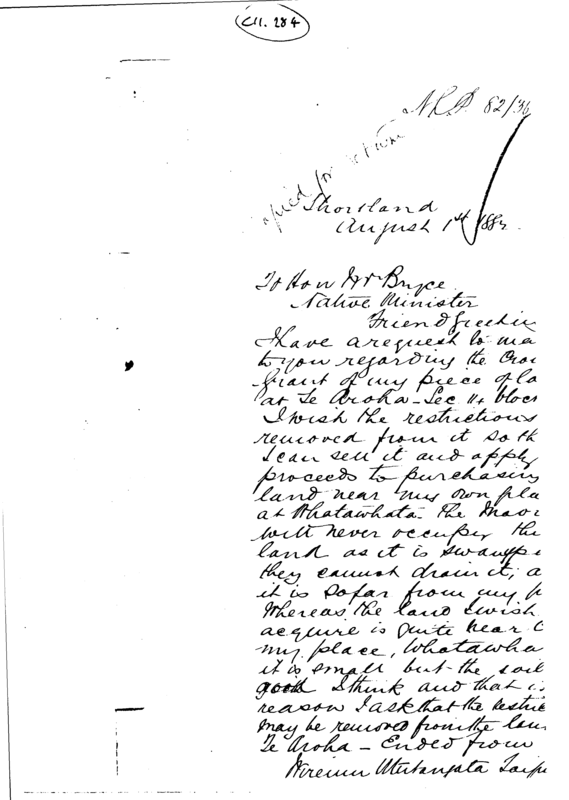 CH. 284
N.L.P. 82/36
Copied for return
Shortland
August 1st 188
To Hon Mr Bryce
Native Minister
Friend Greetin
I have a request to ma
to you regarding the Crow
Grant of my piece of la
at Te Aroha - Sec 11 block
I wish the restrictions
removed from it so th
I can sell it and apply
proceeds to purchasing
land near my own pla
at Whatawhata. The Maor
will never occupy the
land as it is swampy
they cannot drain it, a
it is so far from my p
Whereas the land I wish
acquire is quite near
my place, Whatawha
it is small but the soil
good I think and that is
reason I ask that the restric
may be removed from the lan
Te Aroha - Ended from
Wiremu